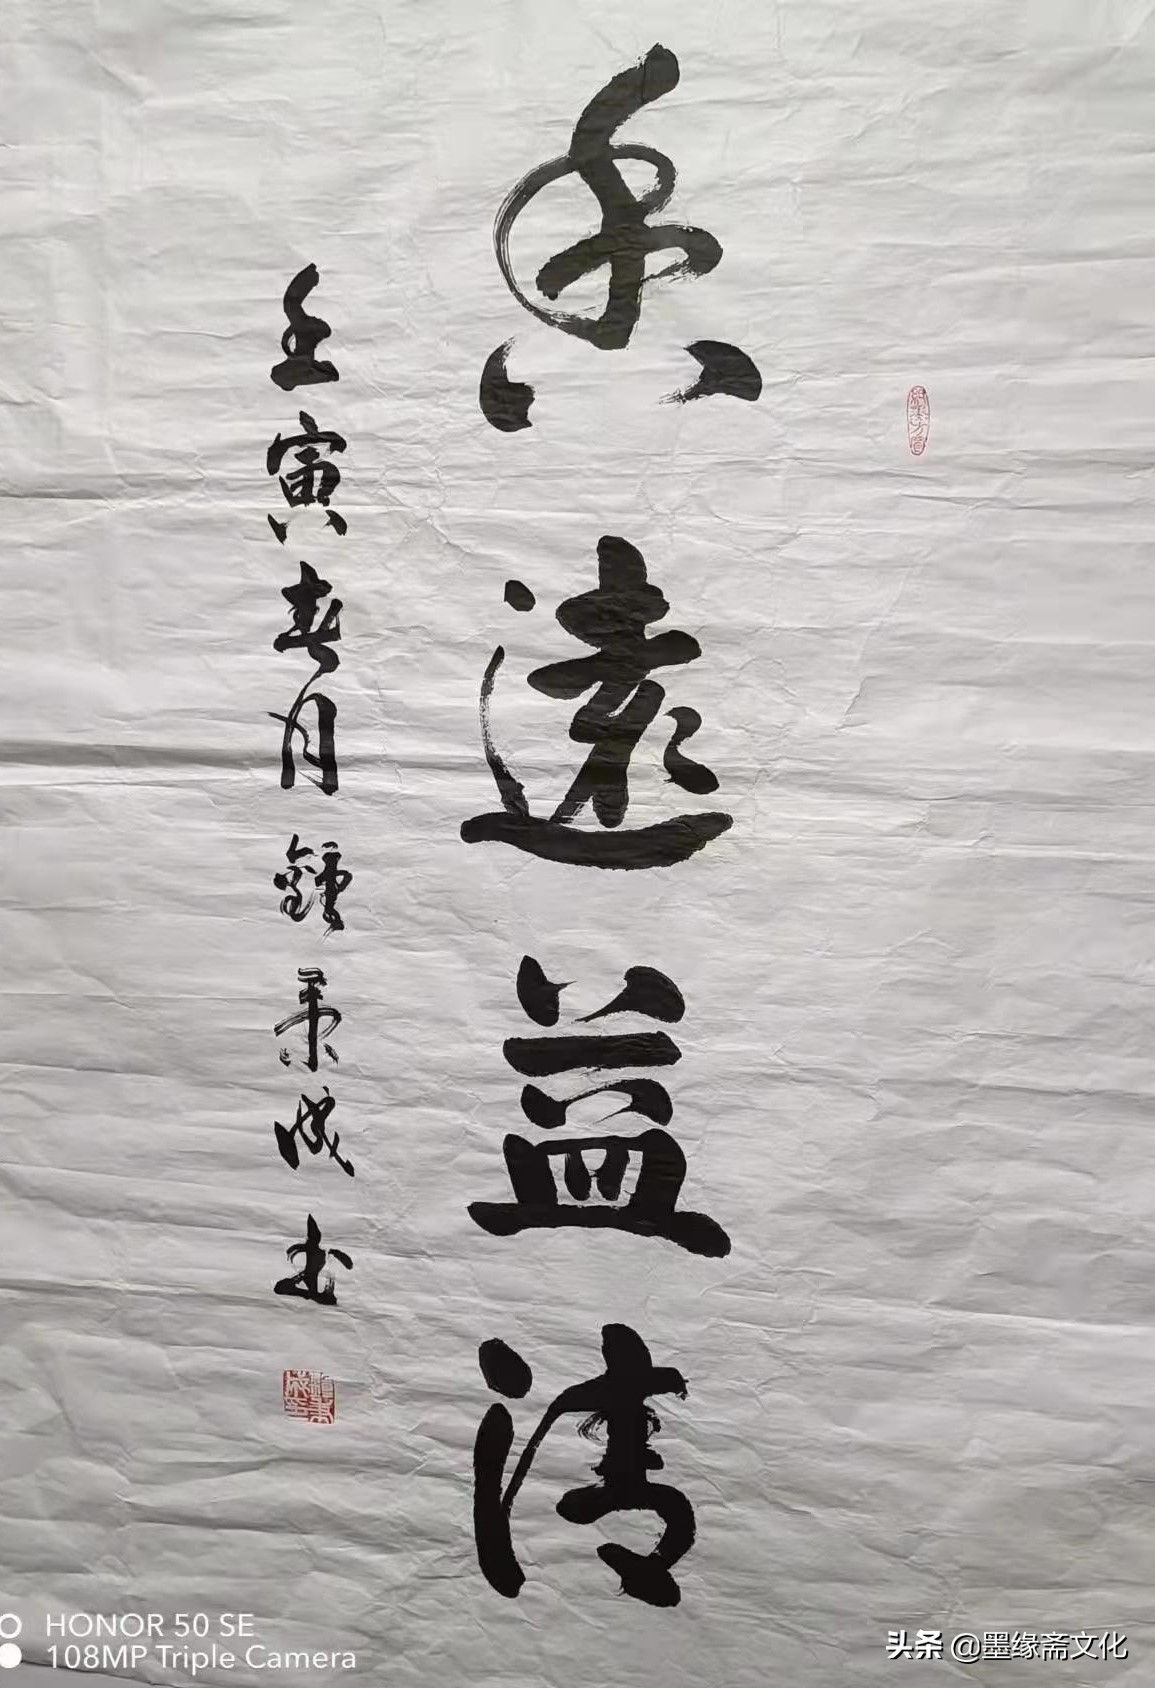 香遠益清
壬寅春月鍾秉成书
HONOR 50 SE
108MP Triple Camera
头条 @墨缘斋文化